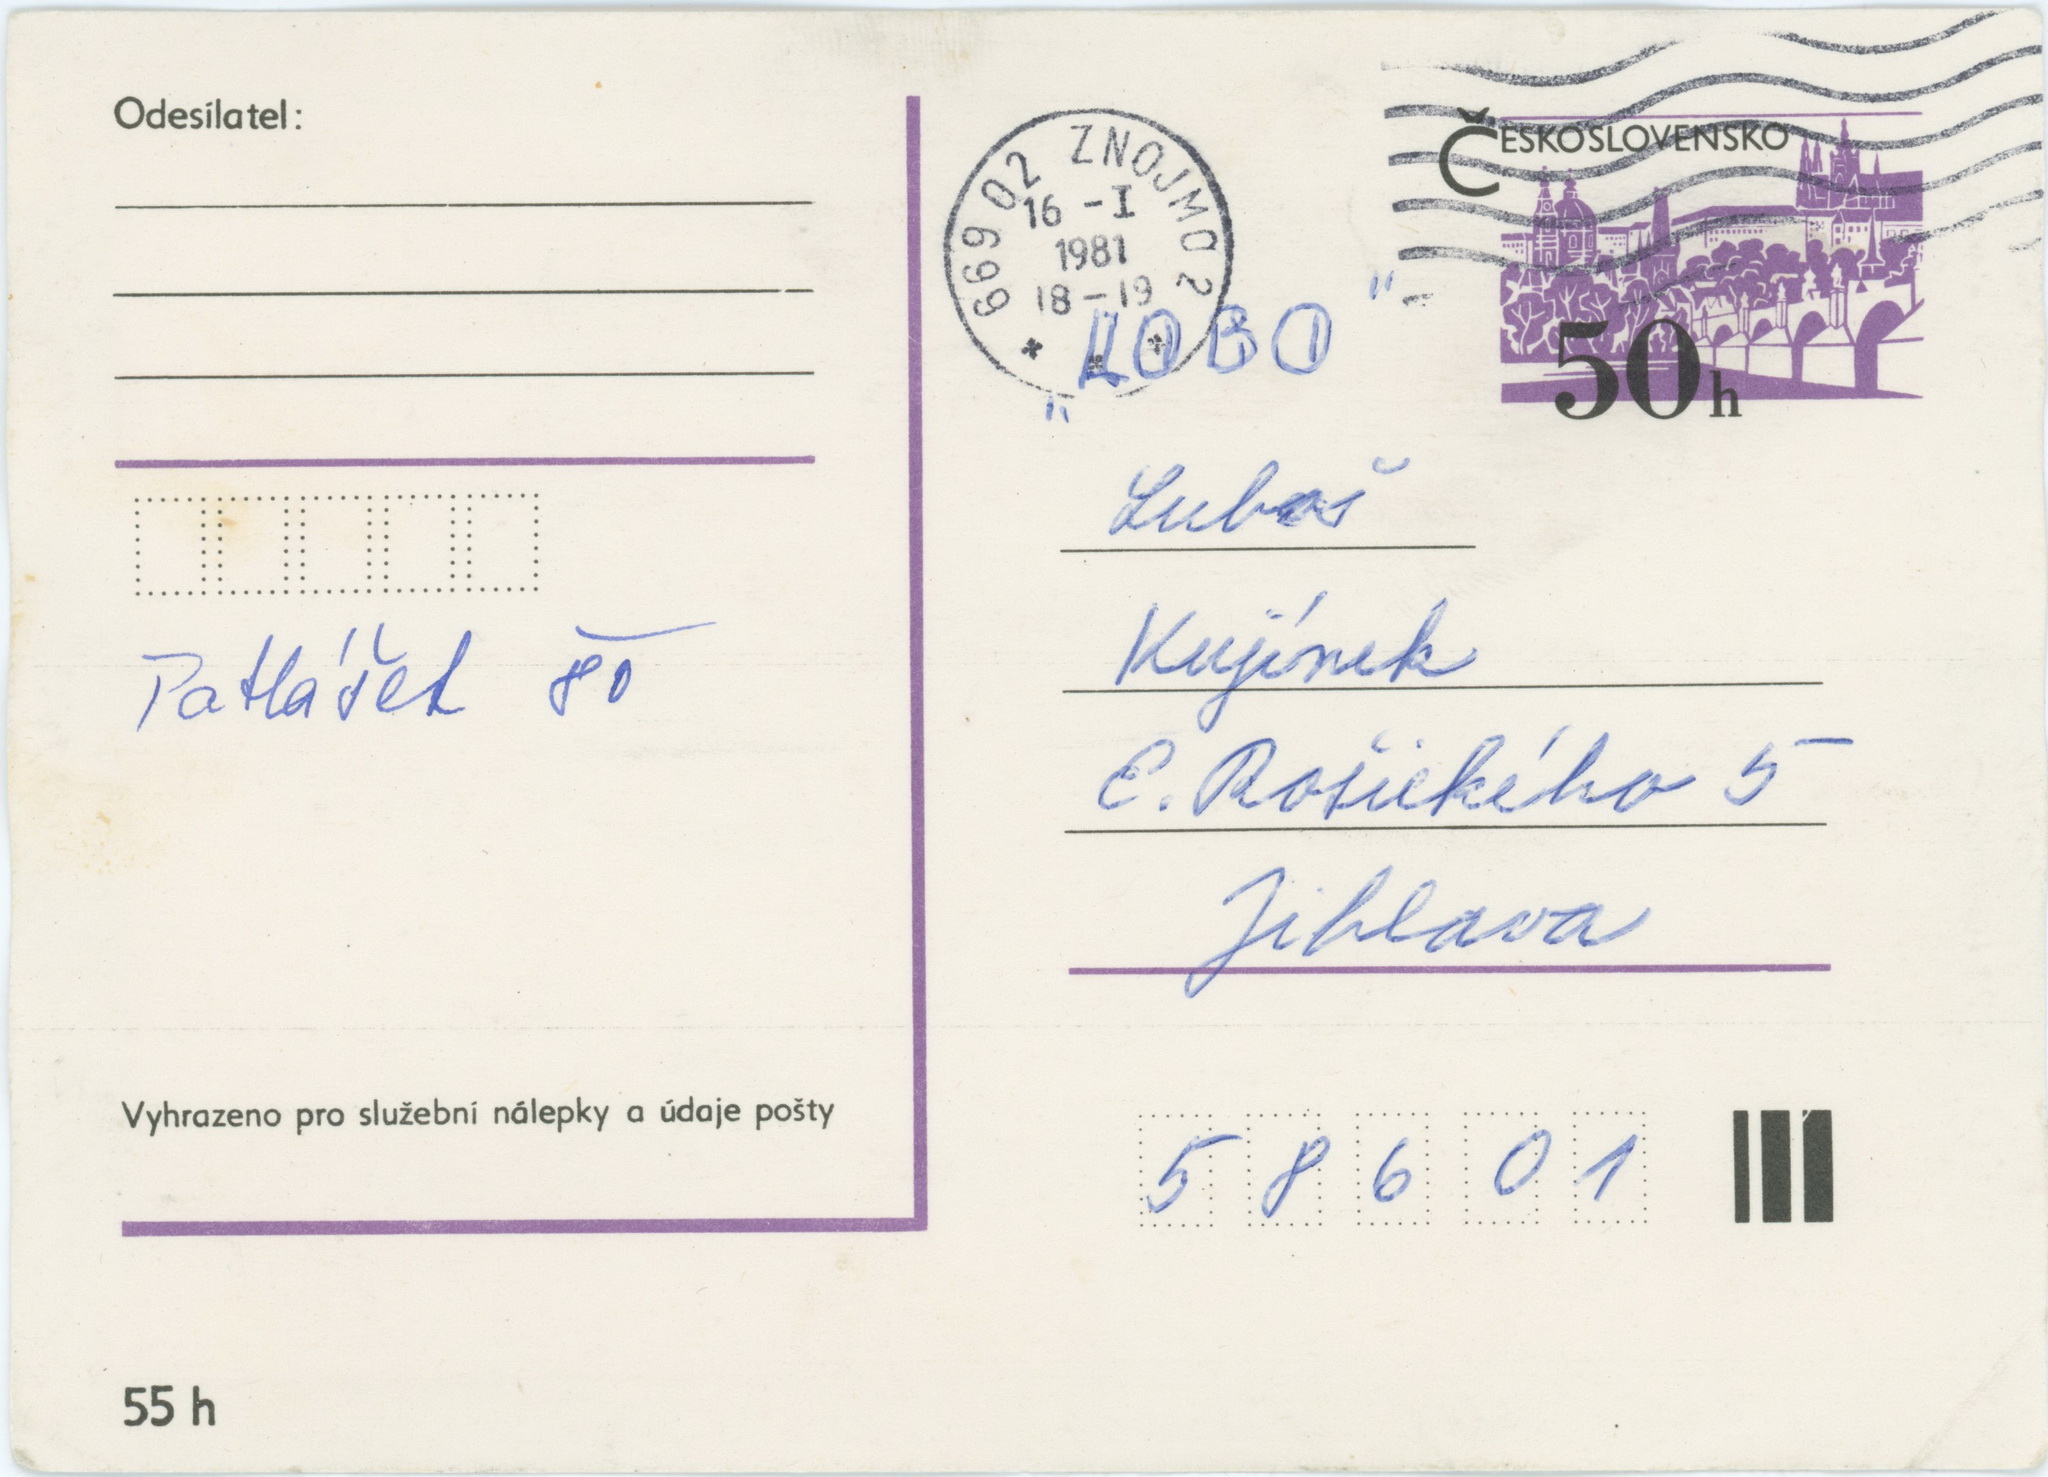 Odesílatel:
Patlášek 80
Vyhrazeno pro služební nálepky a údaje pošty
55 h
669 02 ZNOJMO 2
16 -I
1981
18-19
ČESKOSLOVENSKO
50h
„LOBO"
Luboš
Kujínek
E. Rošického 5
Jihlava
58601